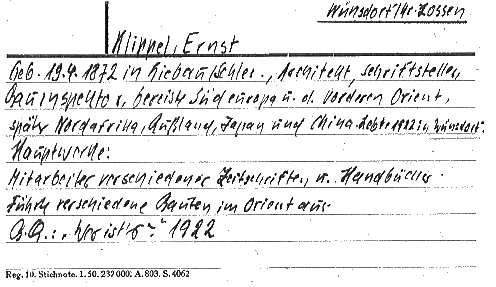 Wünsdorf/Kr. Zossen
Klippel, Ernst
Geb. 19.4.1872 in Liebau/Schles., Architekt, Schriftsteller,
Bauinspektor, bereiste Südeuropa u. d. Vorderen Orient,
später Nordafrika, Rußland, Japan und China. Lebte 1922 in Wünsdorf.
Hauptwerke:
Mitarbeiter verschiedener Zeitschriften u. Handbücher.
Führte verschiedene Bauten im Orient aus.
B.Q.: "Wer ist's" 1922
Reg. 10. Stichnote. 1. 50. 237 000. A. 803. S. 4062